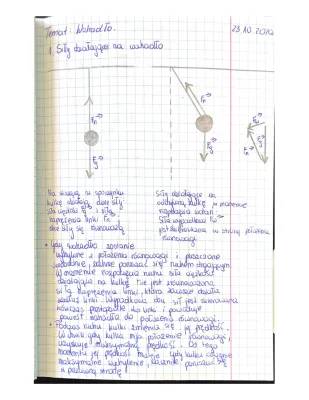 Temat: Wahadło.
23.10.2020
1. Siły działające na wahadło
Fn
Fg
Fn
Fg
Fn
Fg
Na wiszącą w spoczynku
kulkę działają dwie siły:
siła ciężkości Fg i siła
naprężenia linki Fn
obie siły się równoważą
Siły działające na
odchyloną kulkę w momencie
rozpoczęcia wahań.
Siła wypadkowa Fw
jest skierowana w stronę położenia
równowagi
• Gdy wahadło zostanie
wychylone z położenia równowagi i puszczone
swobodnie, zacznie poruszać się ruchem drgającym
W momencie rozpoczęcia ruchu siła ciężkości
działająca na kulkę nie jest równoważona
siłą naprężenia linki, która zawsze działa
wzdłuż linki. Wypadkowa tych sił jest skierowana
wówczas prostopadle do linki i powoduje
powrót wahadła do położenia równowagi.
• Podczas ruchu kulki zmienia się jej prędkość.
W chwili gdy kulka mija położenie równowagi,
uzyskuje maksymalną prędkość. Od tego
momentu jej prędkość maleje. Gdy kulka osiągnie
maksymalne wychylenie, zacznie poruszać się
w przeciwną stronę!